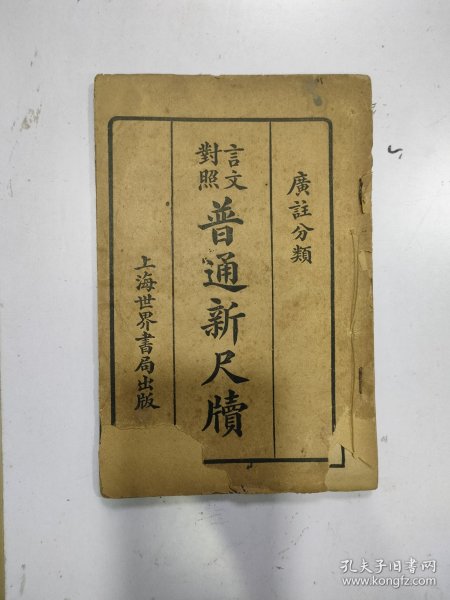 廣註分類
言文
對照
普通新尺牘
上海世界書局出版
孔夫子旧书网
www.kongfz.com